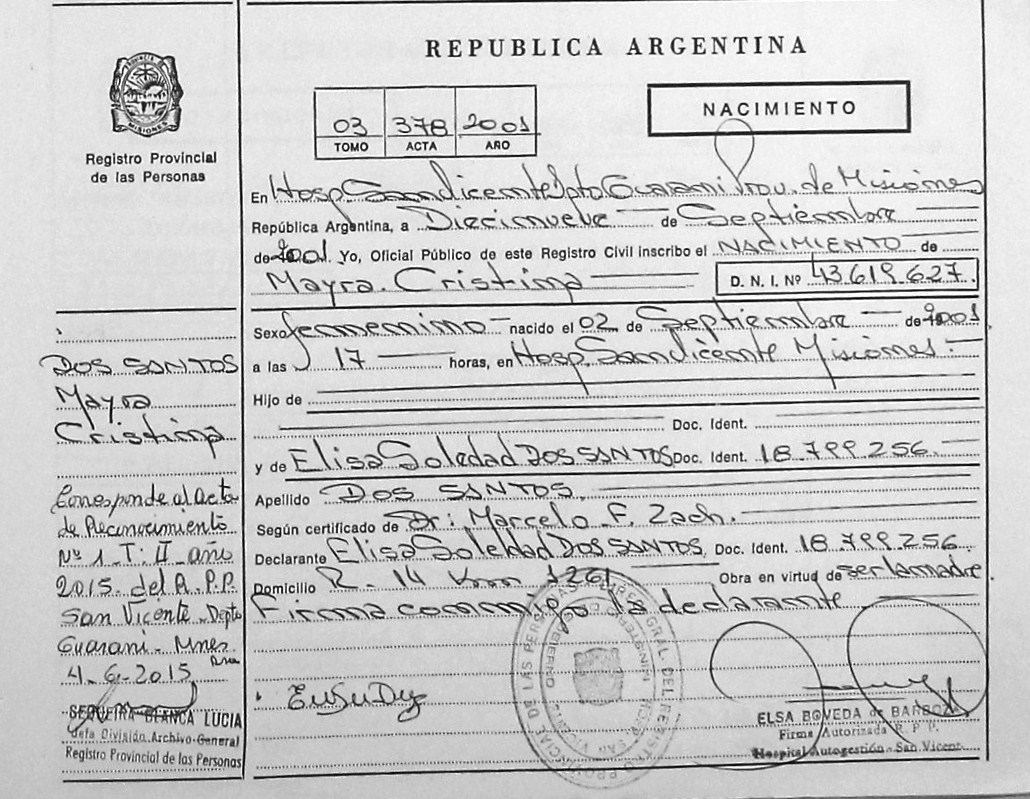 REPUBLICA ARGENTINA
PROVINCIA DE MISIONES
Registro Provincial
de las Personas
03 378 2001
TOMO ACTA AÑO
NACIMIENTO
En Hosp San Vicente Dpto Guarani Prov. de Misiones
República Argentina, a Diecinueve de Septiembre
de 2001. Yo, Oficial Público de este Registro Civil inscribo el NACIMIENTO de
Mayra Cristina D. N. I. Nº 43.619.627.
Sexo femenino nacido el 02 de Septiembre de 2001.
a las 17 horas, en Hosp San Vicente Misiones.
Hijo de
Doc. Ident.
y de Elisa Soledad DOS SANTOS Doc. Ident. 18.799.256.
Apellido DOS SANTOS.
Según certificado de Dr: Marcelo F. Zach.
Declarante Elisa Soledad DOS SANTOS. Doc. Ident. 18.799.256.
Domicilio R. 14 Km 1261. Obra en virtud de ser la madre
Firma conmigo la declarante
DOS SANTOS
Mayra
Cristina
Corresponde al Acta
de Reconocimiento
Nº 1 T: II año
2015 del R.P.P.
San Vicente Dpto
Guaraní Mnes.
4-6-2015
SEQUEIRA BLANCA LUCIA
Jefa División Archivo General
Registro Provincial de las Personas
ELSA BOVEDA de BARBOZA
Firma Autorizada R. P. P.
Hospital Autogestión - San Vicente